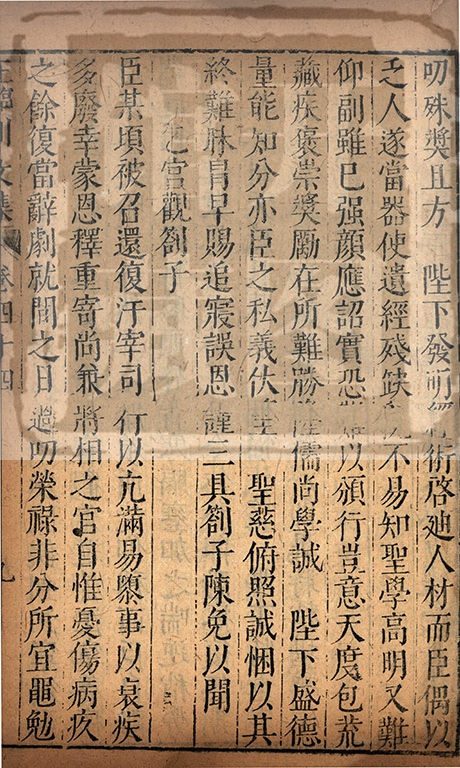 叨殊奬且方　陛下發明術啓廸人材而臣偶以
乏人遂當器使遺經殘缺不易知聖學高明又難
仰副雖已强顔應詔實恐以頒行豈意天度包荒
藏疾褒崇奬厲在所難勝儒尚學誠　陛下盛德
量能知分亦臣之私義伏　聖慈俯照誠悃以其
終難昧冒早賜追寢誤恩謹三具劄子陳免以聞
宮觀劄子
臣某頃被召還復汙宰司行以亢滿易隳事以衰疾
多廢幸蒙恩釋重寄尚兼將相之官自惟憂傷病疚
之餘復當辭劇就閒之日逾叨榮祿非分所宜黽勉
王臨川文集　卷四十四　九